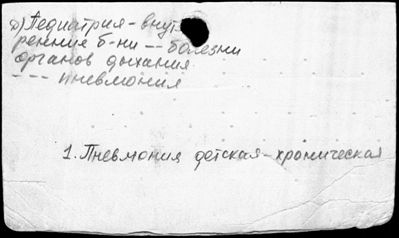 д) Педиатрия - внут
ренние б-ни -- болезни
органов дыхания.
--- пневмония
1. Пневмония детская - хроническая